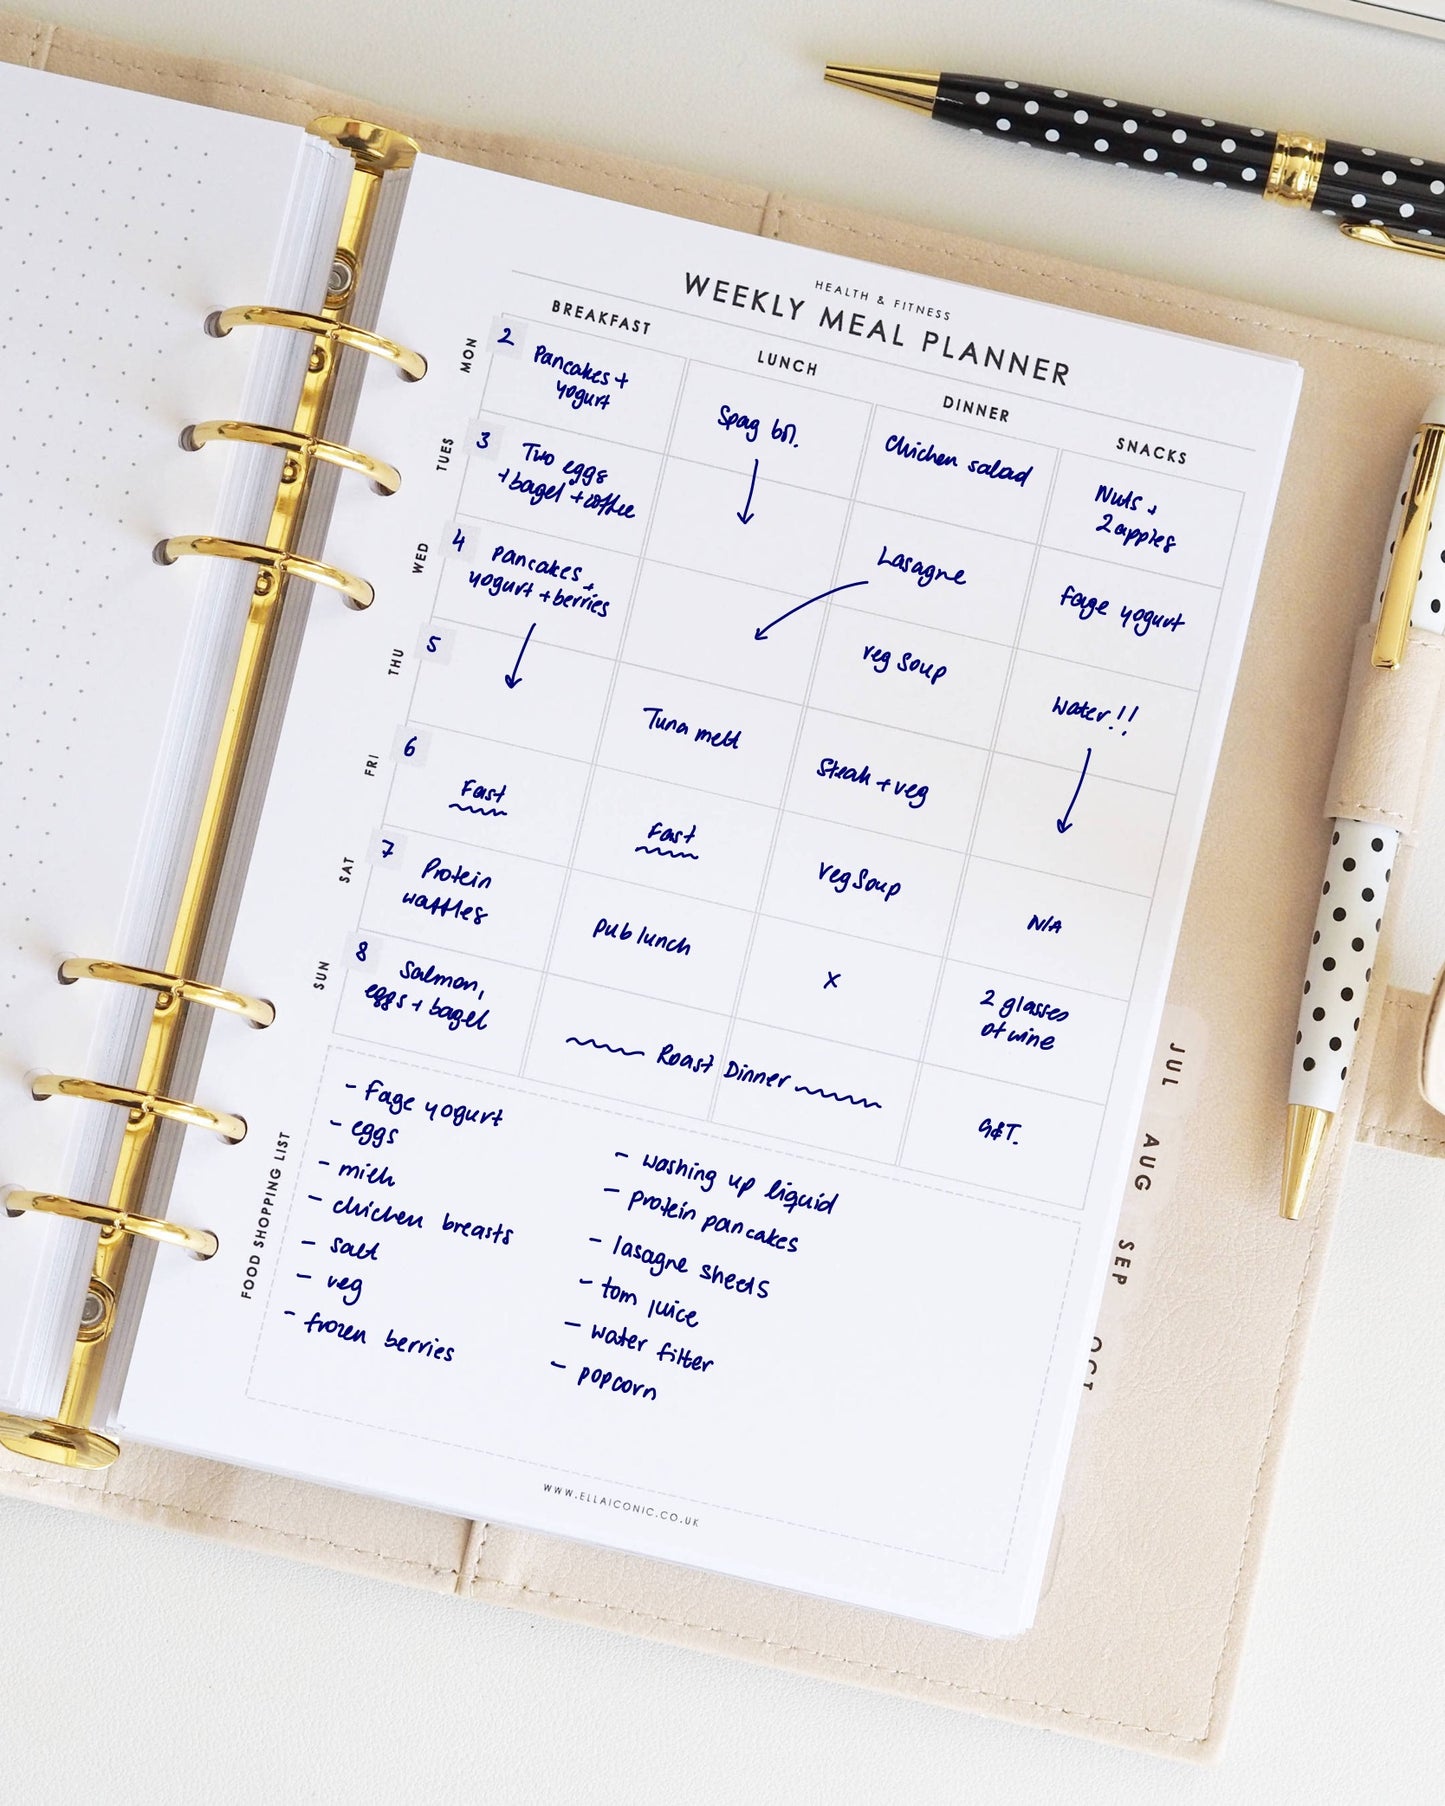 HEALTH & FITNESS
WEEKLY MEAL PLANNER
BREAKFAST
LUNCH
DINNER
SNACKS
MON
2
Pancakes +
yogurt
Spag bol.
Chicken salad
Nuts +
2 apples
TUES
3
Two eggs
+ bagel + coffee
Lasagne
Fage yogurt
WED
4
Pancakes +
yogurt + berries
veg soup
Water!!
THU
5
Tuna melt
Steak + veg
FRI
6
Fast
Fast
Veg Soup
N/A
SAT
7
Protein
waffles
Pub lunch
X
2 glasses
of wine
SUN
8
Salmon,
eggs + bagel
Roast Dinner
G&T.
FOOD SHOPPING LIST
- Fage yogurt
- eggs
- milk
- chicken breasts
- salt
- veg
- frozen berries
- washing up liquid
- protein pancakes
- lasagne sheets
- tom juice
- water filter
- popcorn
WWW.ELLAICONIC.CO.UK
JUL
AUG
SEP
OCT